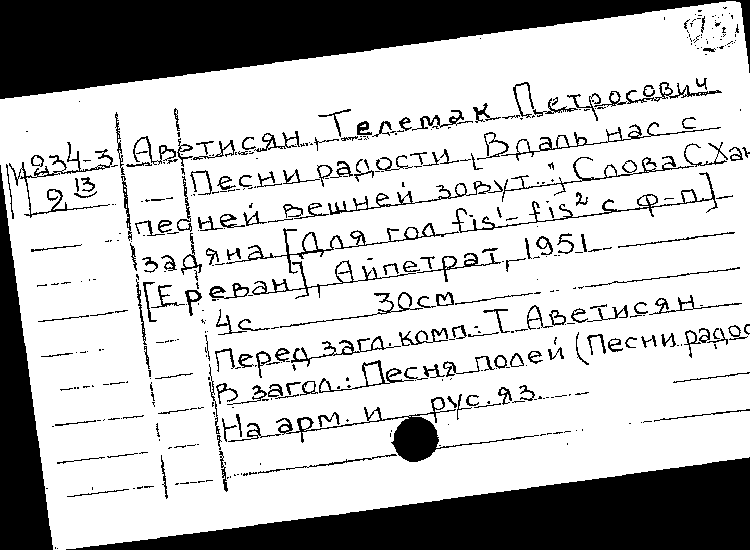 М 234-3
9 13
Аветисян, Телемак Петрович
Песни радости [„Вдаль нас с
песней вешней зовут..."]. Слова С. Хан
задяна. [Для гол. fis¹-fis² с ф-п.]
[Ереван], Айпетрат, 1951
4с 30см
Перед загл. комп.: Т. Аветисян
В загол.: Песня полей (Песни радос
На арм. и рус. яз.